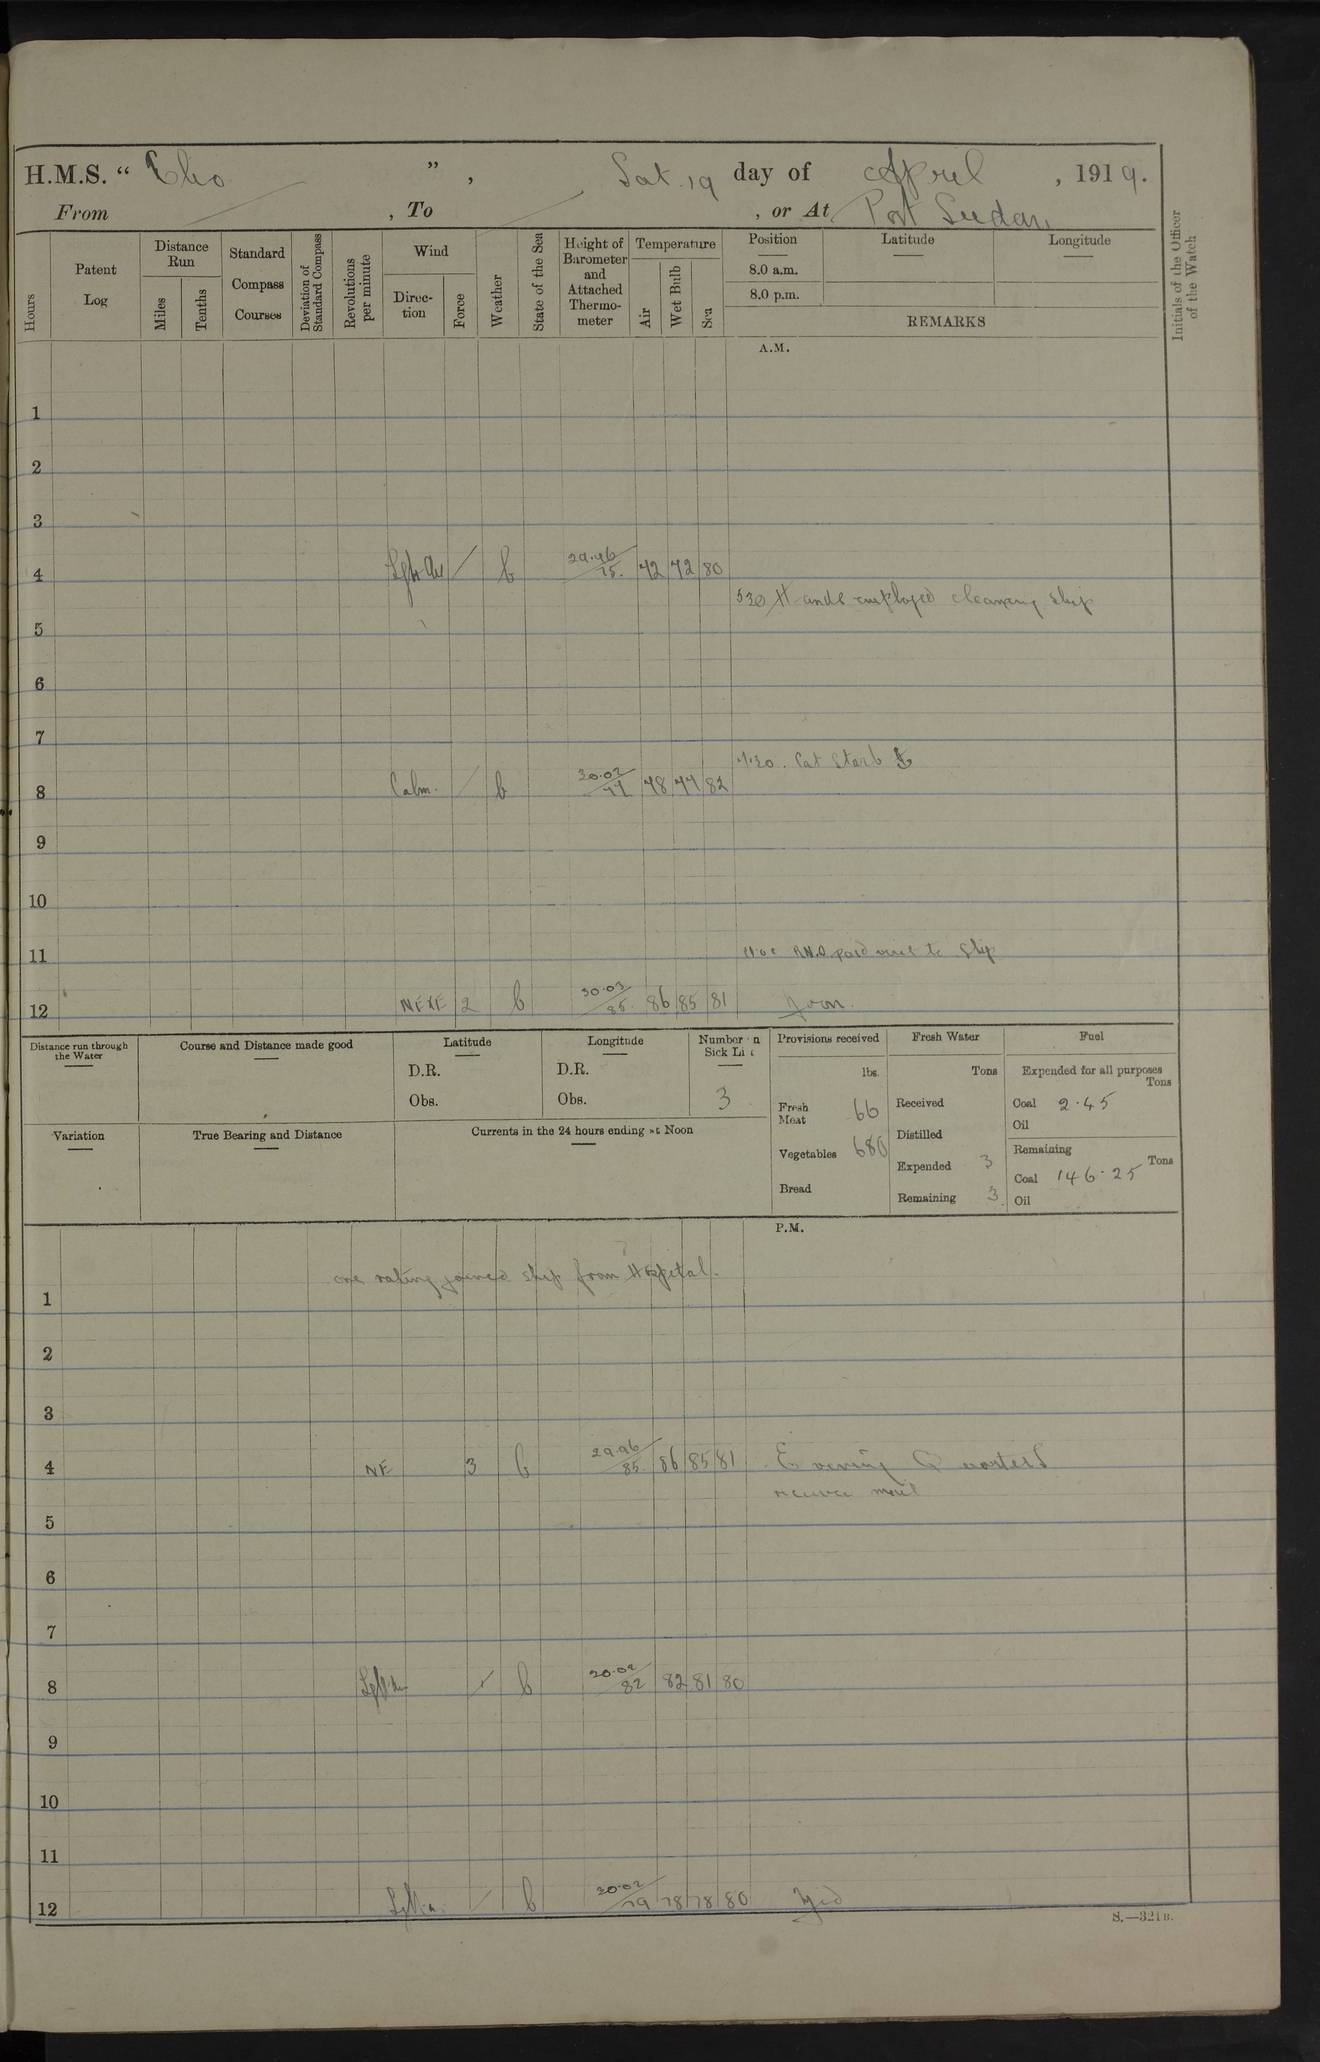 H.M.S. “ Clio ” , Sat. 19 day of April , 1919.
From , To , or At Port Sudan
Hours
Patent Log
Distance Run
Miles
Tenths
Standard Compass Courses
Deviation of Standard Compass
Revolutions per minute
Wind
Direc-tion
Force
Weather
State of the Sea
Height of Barometer and Attached Thermo-meter
Temperature
Air
Wet Bulb
Sea
Position
8.0 a.m.
8.0 p.m.
Latitude
Longitude
REMARKS
Initials of the Officer of the Watch
A.M.
1
2
3
4 b 29.96 75. 72 72 80
530 Hands employed cleaning ship
5
6
7
7.30. Cat Starb
8 Calm. b 30.02 77 78 77 82
9
10
11 paid visit to Ship
12 2 b 30.03 85. 86 85 81 Noon.
Distance run through the Water
Course and Distance made good
Latitude
D.R.
Obs.
Longitude
D.R.
Obs.
Number on Sick List
3
Variation
True Bearing and Distance
Currents in the 24 hours ending at Noon
Provisions received
lbs.
Fresh Meat 66
Vegetables 680
Bread
Fresh Water
Tons
Received
Distilled
Expended 3
Remaining 3
Fuel
Expended for all purposes
Tons
Coal 2.45
Oil
Remaining
Tons
Coal 146.25
Oil
P.M.
one rating joined ship from Hospital.
1
2
3
4 NE 3 b 29.96 85. 86 85 81 Evening Quarters
receive mail
5
6
7
8 b 82 82 81 80
9
10
11
12 b 79 78 78 80 Mid
S.—321B.